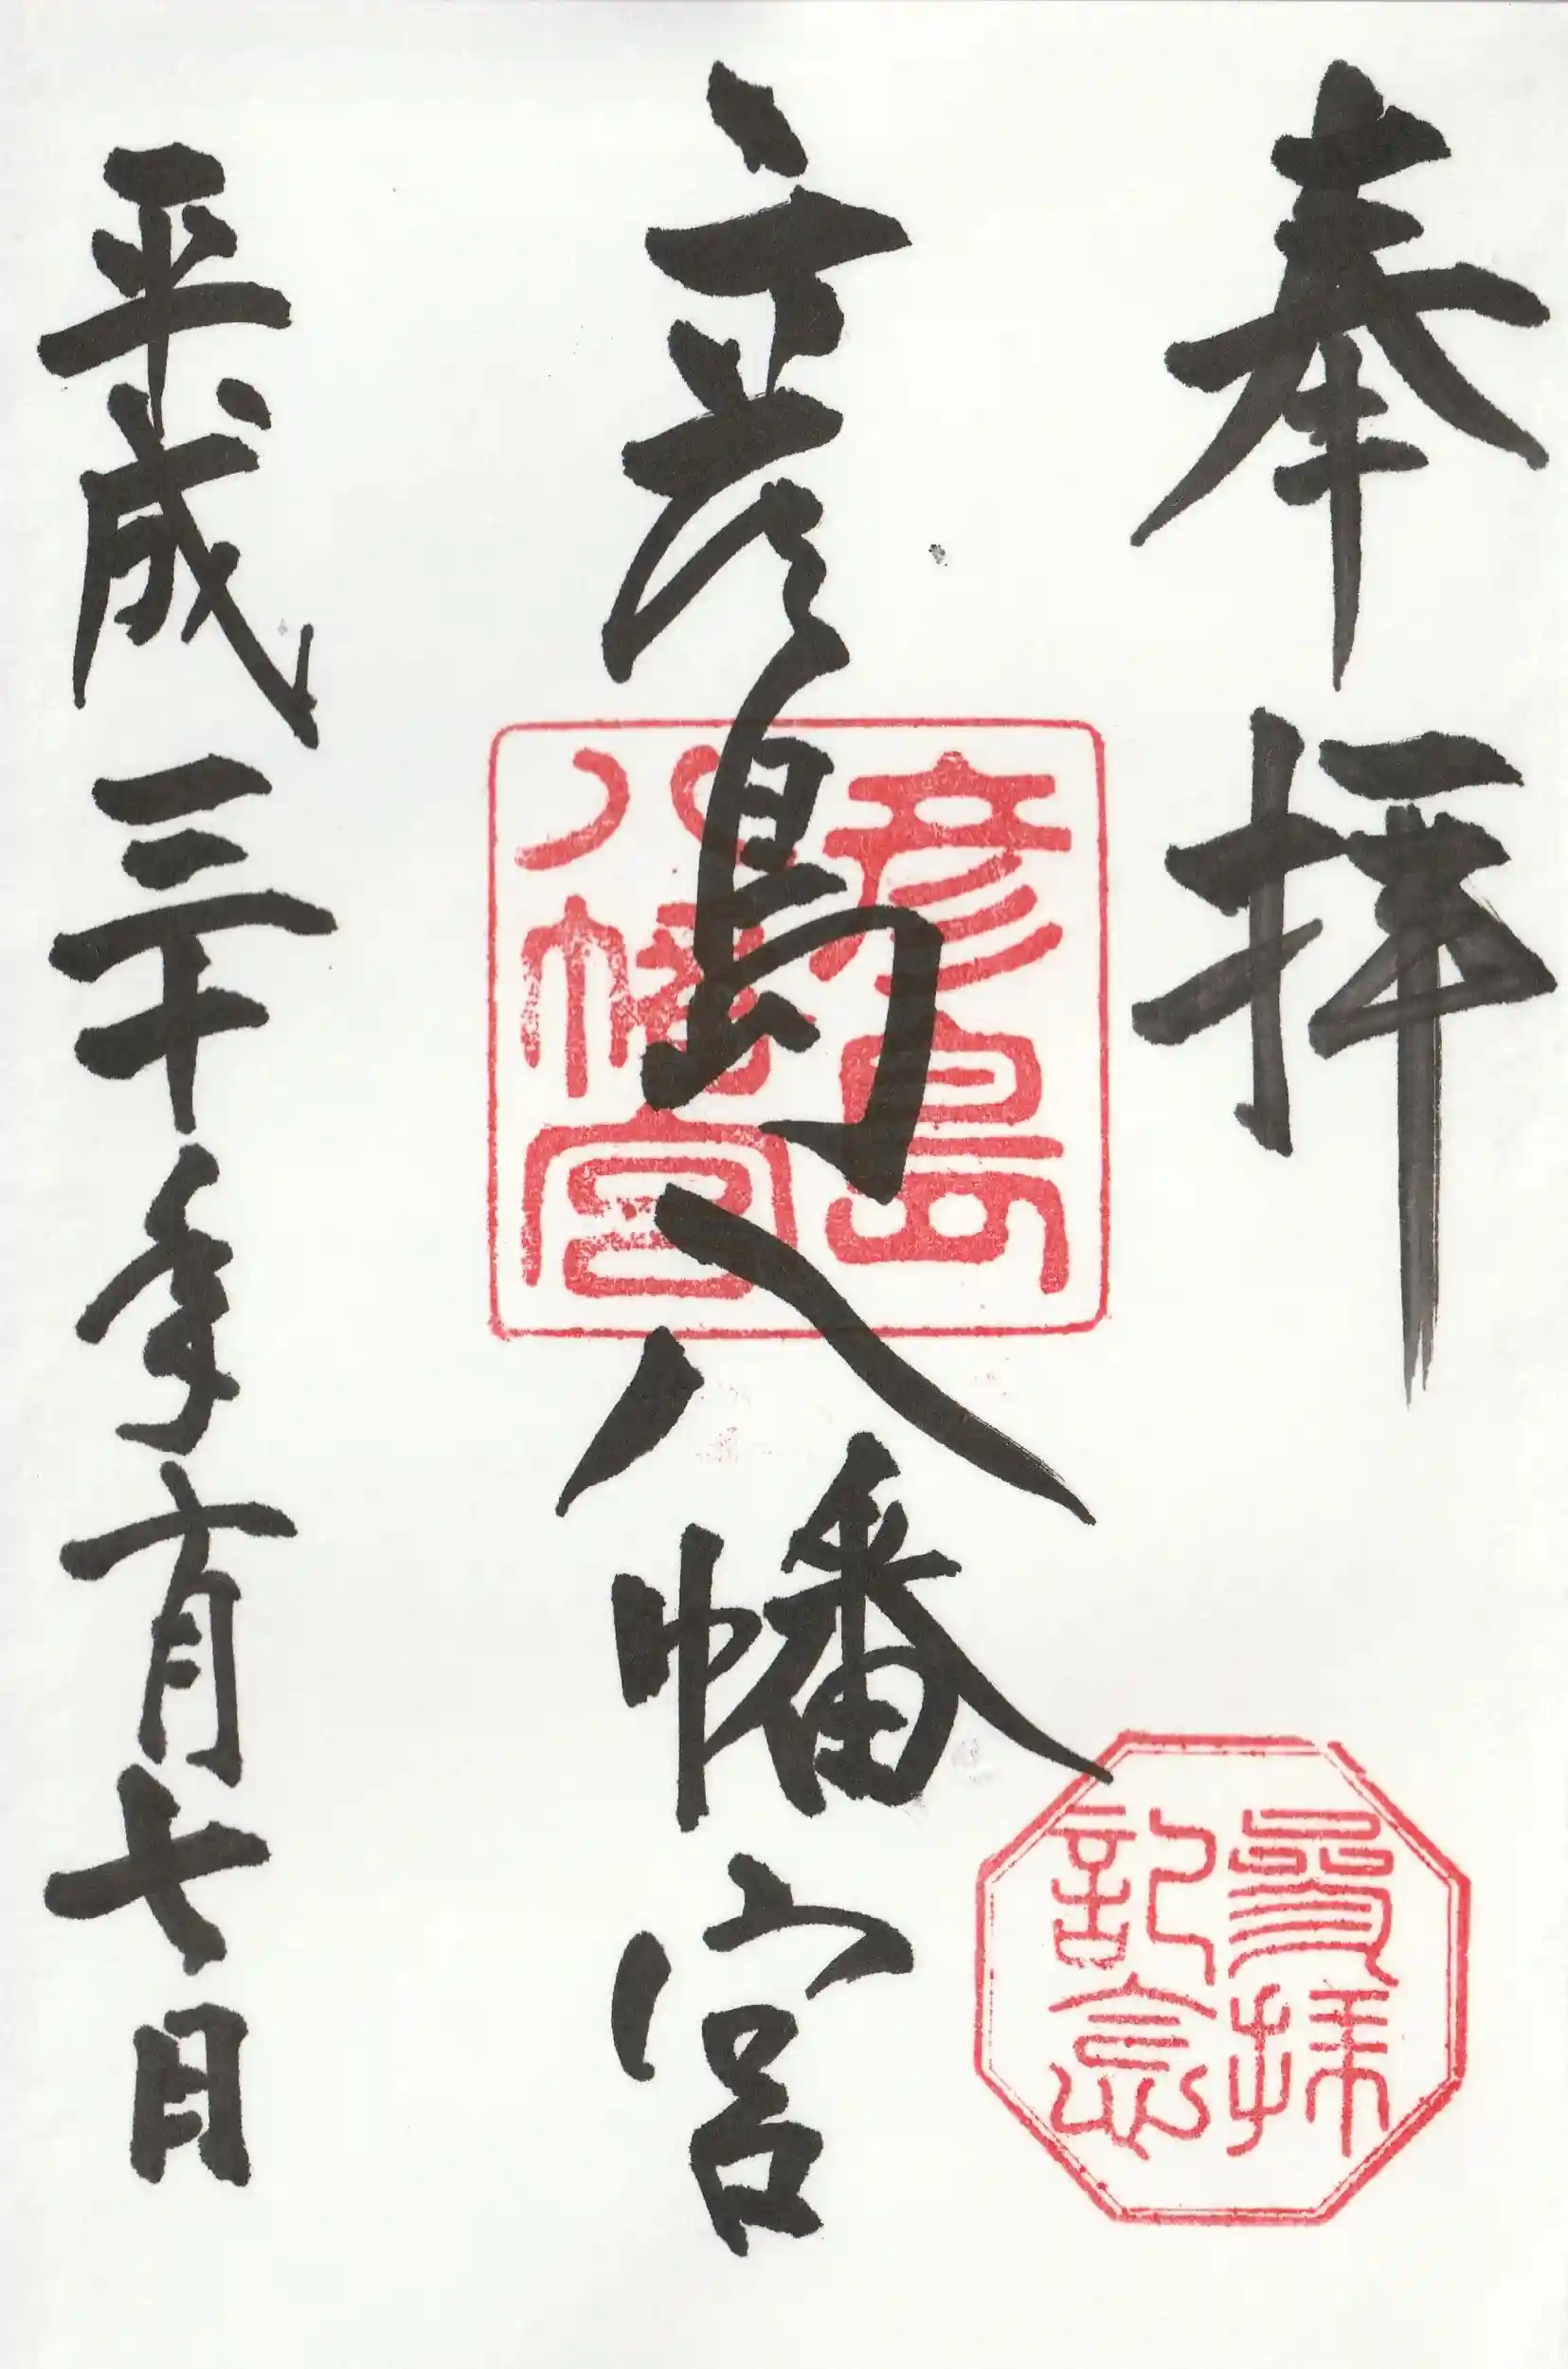 奉拝
彦島八幡宮
平成三十年六月七日
彦島
八幡宮
參拝
記念